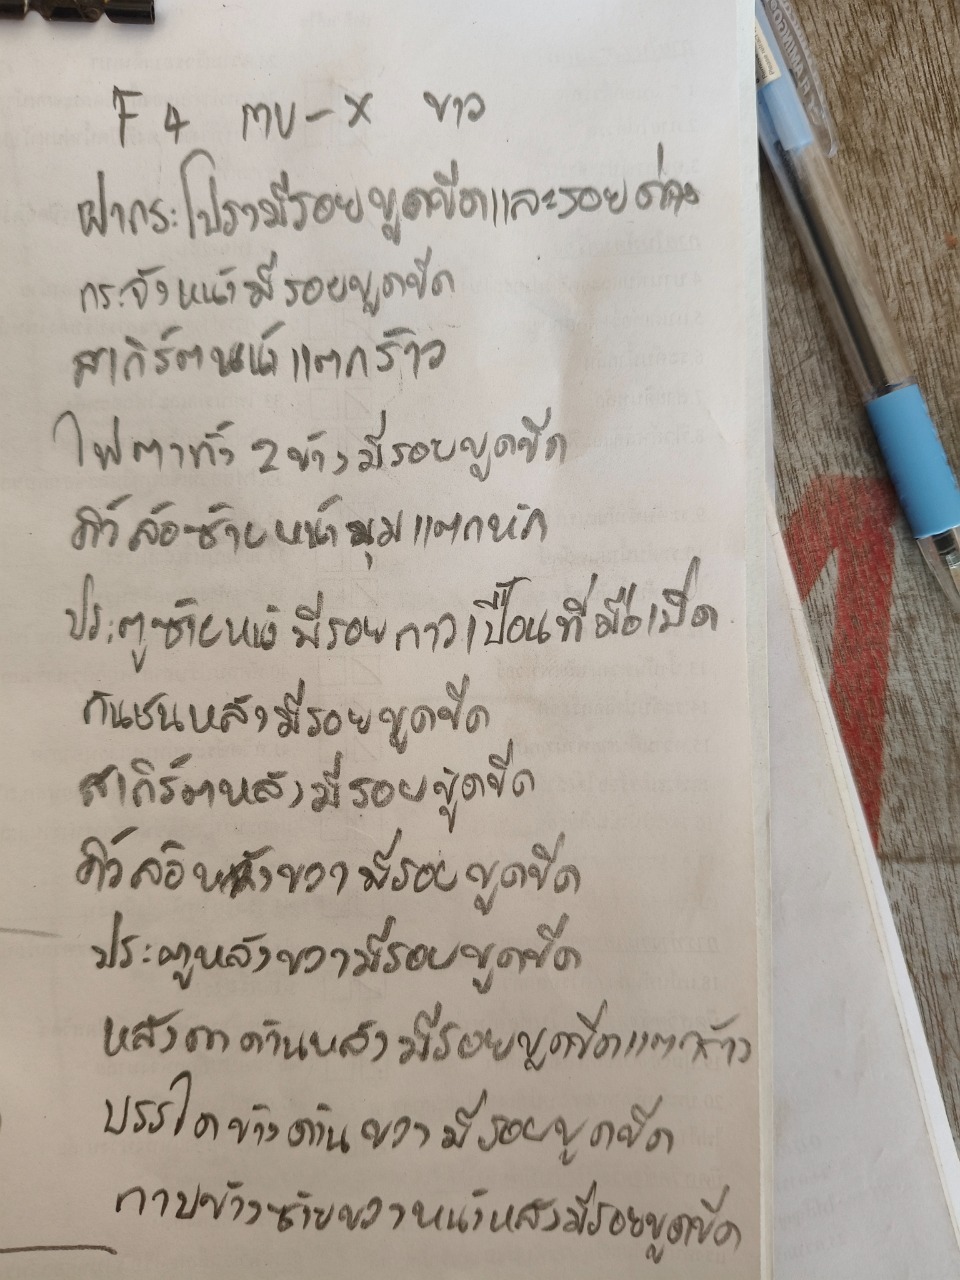 F4 mu-X ขาว
ฝากระโปรงมีรอยขูดขีดและรอยด่าง
กระจังหน้ามีรอยขูดขีด
สเกิร์ตหน้าแตกร้าว
ไฟตาทั้ง 2 ข้างมีรอยขูดขีด
คิ้วล้อซ้ายหน้ามุมแตกหัก
ประตูซ้ายหน้ามีรอยกาวเปื้อนที่มือเปิด
กันชนหลังมีรอยขูดขีด
สเกิร์ตหลังมีรอยขูดขีด
คิ้วล้อหลังขวามีรอยขูดขีด
ประตูหลังขวามีรอยขูดขีด
หลังคาด้านหลังมีรอยขูดขีดแตกร้าว
บรรไดข้างด้านขวามีรอยขูดขีด
กาบข้างซ้ายขวาหน้าหลังมีรอยขูดขีด